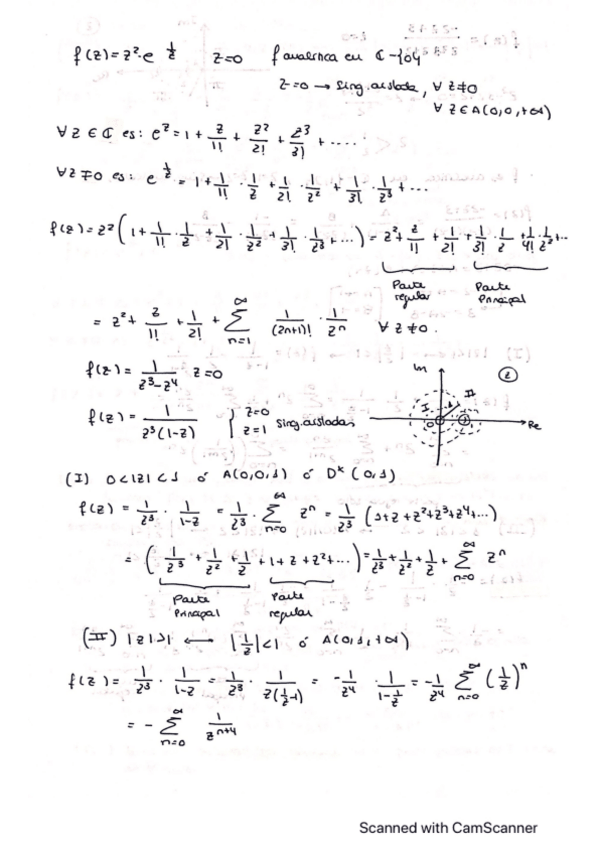 f(z) = z²·e^(1/z)   z=0   f analítica en ℂ-{0}
z=0 → sing. aislada, ∀ z≠0
∀ z ∈ A(0,0,+∞)
∀ z ∈ ℂ es: e^z = 1 + z/1! + z²/2! + z³/3! + ....
∀ z≠0 es: e^(1/z) = 1 + 1/1! · 1/z + 1/2! · 1/z² + 1/3! · 1/z³ + ...
f(z) = z² (1 + 1/1! · 1/z + 1/2! · 1/z² + 1/3! · 1/z³ + ...) = z² + z/1! + 1/2! + 1/3! · 1/z + 1/4! · 1/z² + ...
Parte regular   Parte Principal
= z² + z/1! + 1/2! + ∑_(n=1)^∞ 1/(2n+1)! · 1/z^n   ∀ z≠0.
f(z) = 1/(z³-z⁴)   z=0
Im   2
f(z) = 1/(z³(1-z))   { z=0 z=1   sing. aisladas
I   II   0   1   Re
(I) 0<|z|<1 ó A(0,0,1) ó D* (0,1)
f(z) = 1/z³ · 1/(1-z) = 1/z³ · ∑_(n=0)^∞ z^n = 1/z³ (1+z+z²+z³+z⁴+...)
= (1/z³ + 1/z² + 1/z + 1 + z + z² + ...) = 1/z³ + 1/z² + 1/z + ∑_(n=0)^∞ z^n
Parte Principal   Parte regular
(II) |z|>1 ⟷ |1/z|<1 ó A(0,1,+∞)
f(z) = 1/z³ · 1/(1-z) = 1/z³ · 1/(z(1/z-1)) = -1/z⁴ · 1/(1-1/z) = -1/z⁴ ∑_(n=0)^∞ (1/z)^n
= - ∑_(n=0)^∞ 1/z^(n+4)
Scanned with CamScanner